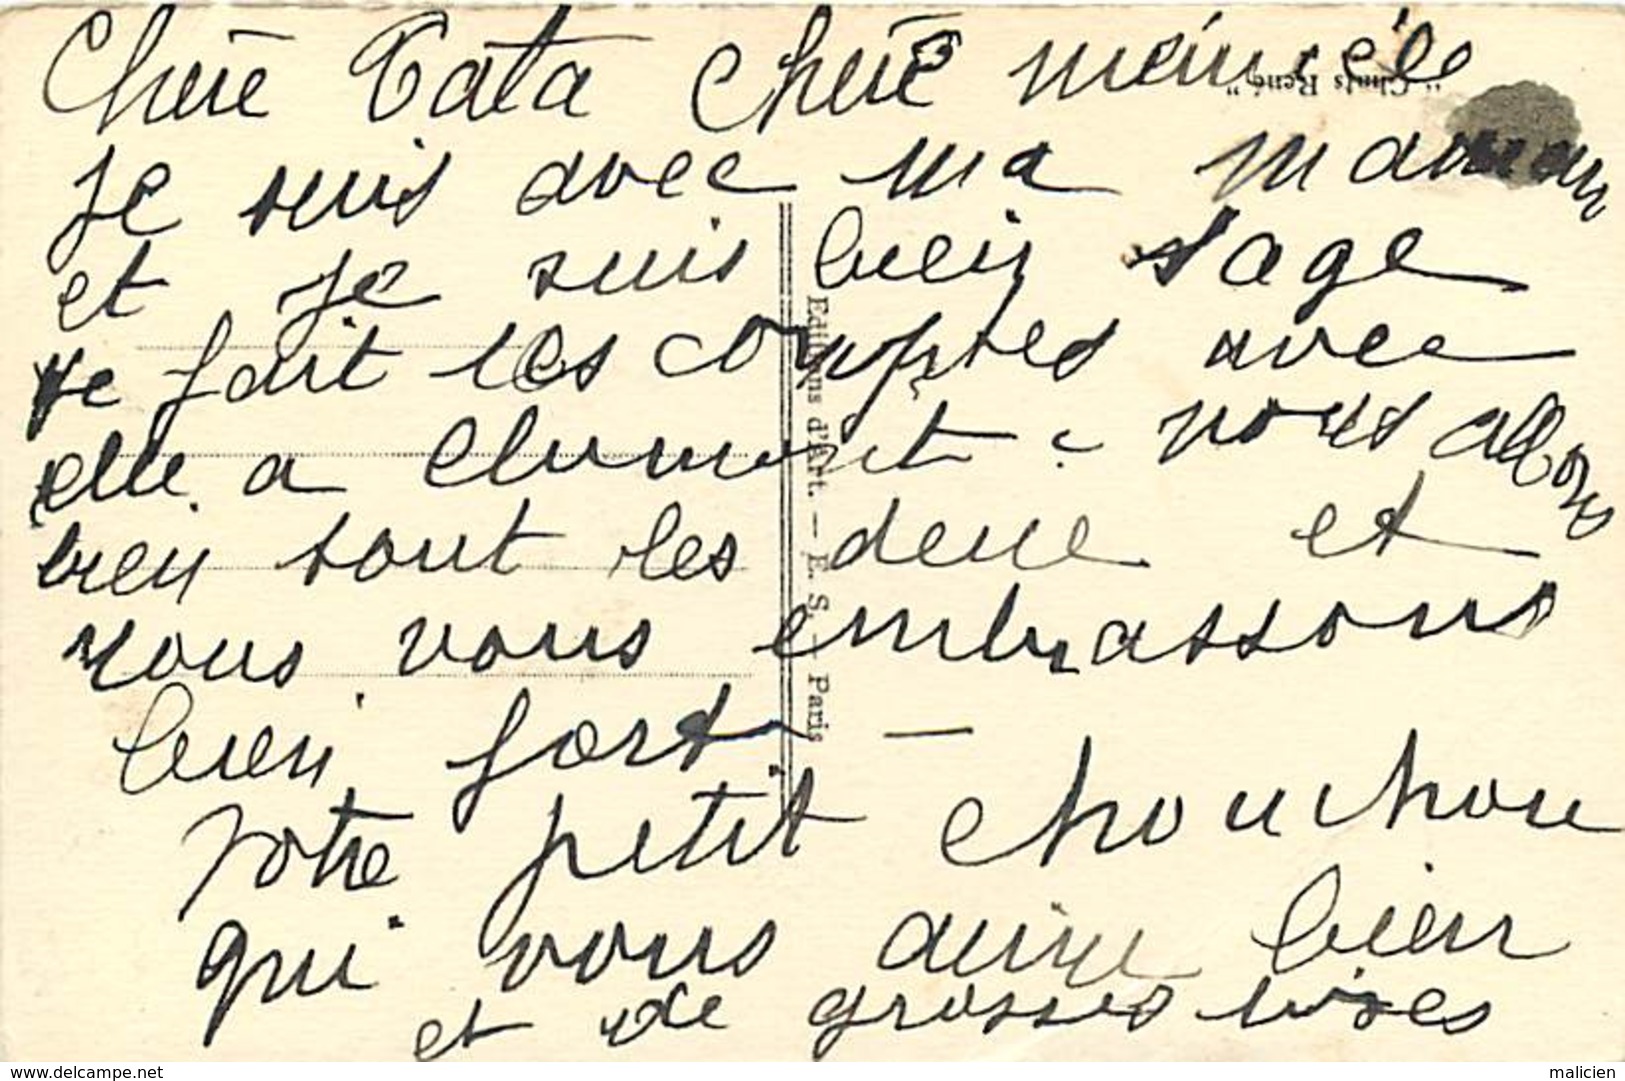 Chère Tata Chère
"Chats René"
Je suis avec ma maman
et je suis bien sage
Je fait les comptes avec
elle a nous allons
bien tout les deue et
nous vous embrassons
bien fort —
votre petit chouchou
qui vous aime bien
et de grosses bises
Editions d'Art. — E. S. — Paris
www.delcampe.net
malicien